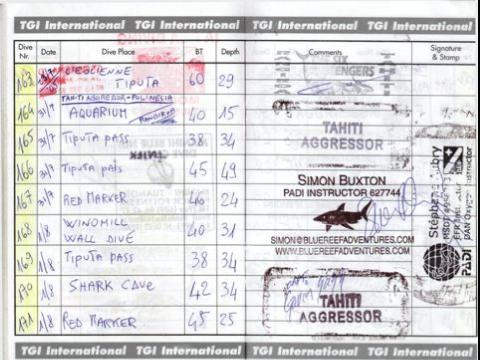 TGI International TGI International TGI International TGI International
Dive Nr. Date Dive Place BT Depth Comments Signature & Stamp
163 31/7 TIPUTA 60 29
TAHITI AGGRESSOR - POLINESIA
164 31/7 AQUARIUM 40 15
TAHITI
AGGRESSOR
165 31/7 TIPUTA PASS 38 34
166 31/7 TIPUTA PASS 45 49
SIMON BUXTON
PADI INSTRUCTOR 627744
167 31/7 RED MARKER 40 24
168 1/8 WINDMILL WALL DIVE 40 31
SIMON@BLUEREEFADVENTURES.COM
WWW.BLUEREEFADVENTURES.COM
Stéphane Aubry
DAN Oxygen Instructor
PADI
169 1/8 TIPUTA PASS 38 34
170 1/8 SHARK CAVE 42 34
TAHITI
AGGRESSOR
171 1/8 RED MARKER 45 25
TGI International TGI International TGI International TGI International